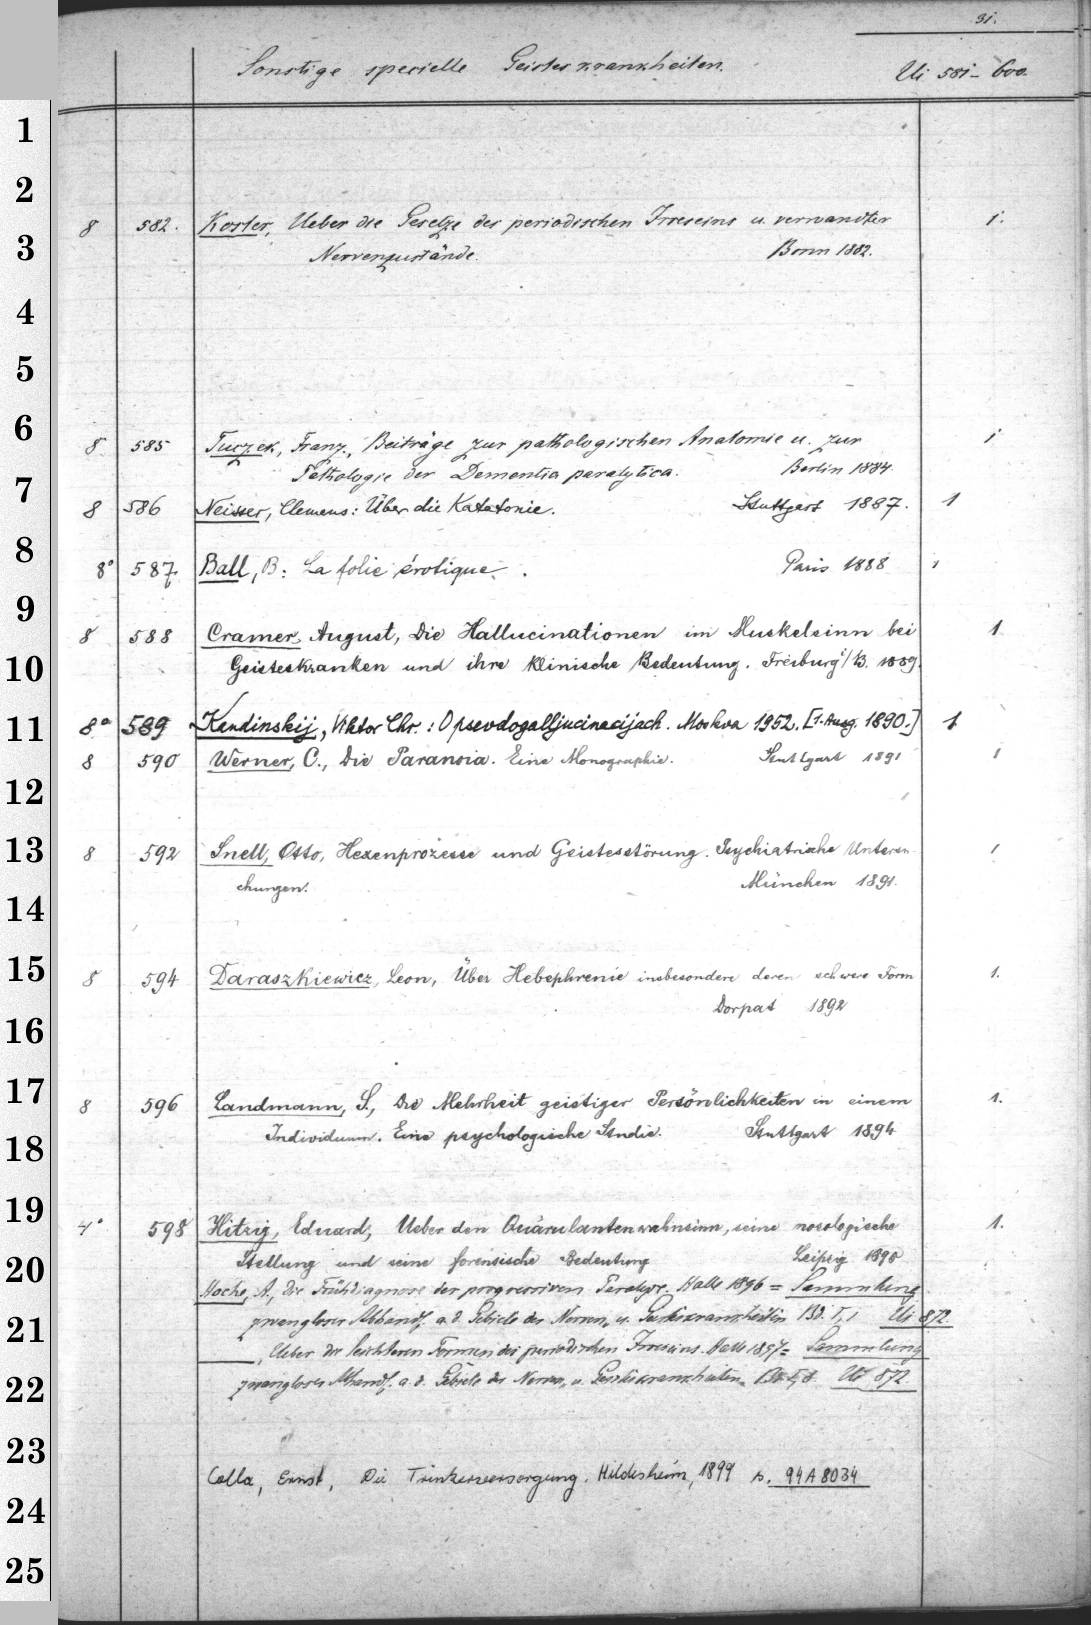 31.
Sonstige specielle Geisteskrankheiten. Ui 581-600.
1
2
8 582. Koster, Ueber die Gesetze des periodischen Irreseins u. verwandter 1.
3
Nervenzustände. Bonn 1882.
4
5
6
8 585 Tuczek, Franz., Beiträge zur pathologischen Anatomie u. zur 1
Pathologie der Dementia paralytica. Berlin 1884.
7
8 586 Neisser, Clemens: Über die Katatonie. Stuttgart 1887. 1
8
8° 587 Ball, B: La folie érotique. Paris 1888 1
9
8 588 Cramer, August, Die Hallucinationen im Muskelsinn bei 1
10
Geisteskranken und ihre klinische Bedeutung. Freiburg i/B. 1889.
11
8° 589 Kandinskij, Viktor Chr.: O psevdogalljucinacijach. Moskva 1952. [1. Ausg. 1890.] 1
8 590 Werner, C., Die Paranoia. Eine Monographie. Stuttgart 1891 1
12
13
8 592 Snell, Otto, Hexenprozesse und Geistesstörung. Psychiatrische Untersu- 1
chungen. München 1891.
14
15
8 594 Daraszkiewicz, Leon, Über Hebephrenie insbesondere deren schwere Form 1.
Dorpat 1892
16
17
8 596 Landmann, S., Die Mehrheit geistiger Persönlichkeiten in einem 1.
Individuum. Eine psychologische Studie. Stuttgart 1894
18
19
4° 598 Hitzig, Eduard, Ueber den Quärulantenwahnsinn, seine nosologische 1.
20
Stellung und seine forensische Bedeutung Leipzig 1895
Hoche, A., Die Frühdiagnose der progressiven Paralyse. Halle 1896 = Sammlung
zwangloser Abhandl. a. d. Gebiete der Nerven- u. Geisteskrankheiten Bd. I,1 Ui 872.
21
, Ueber die leichteren Formen des periodischen Irreseins. Halle 1897 = Sammlung
22
zwangloser Abhandl. a. d. Gebiete der Nerven- u. Geisteskrankheiten. Bd. I,8. Ui 872.
23
Colla, Ernst, Die Trinkerversorgung. Hildesheim, 1899 s. 94 A 8034
24
25